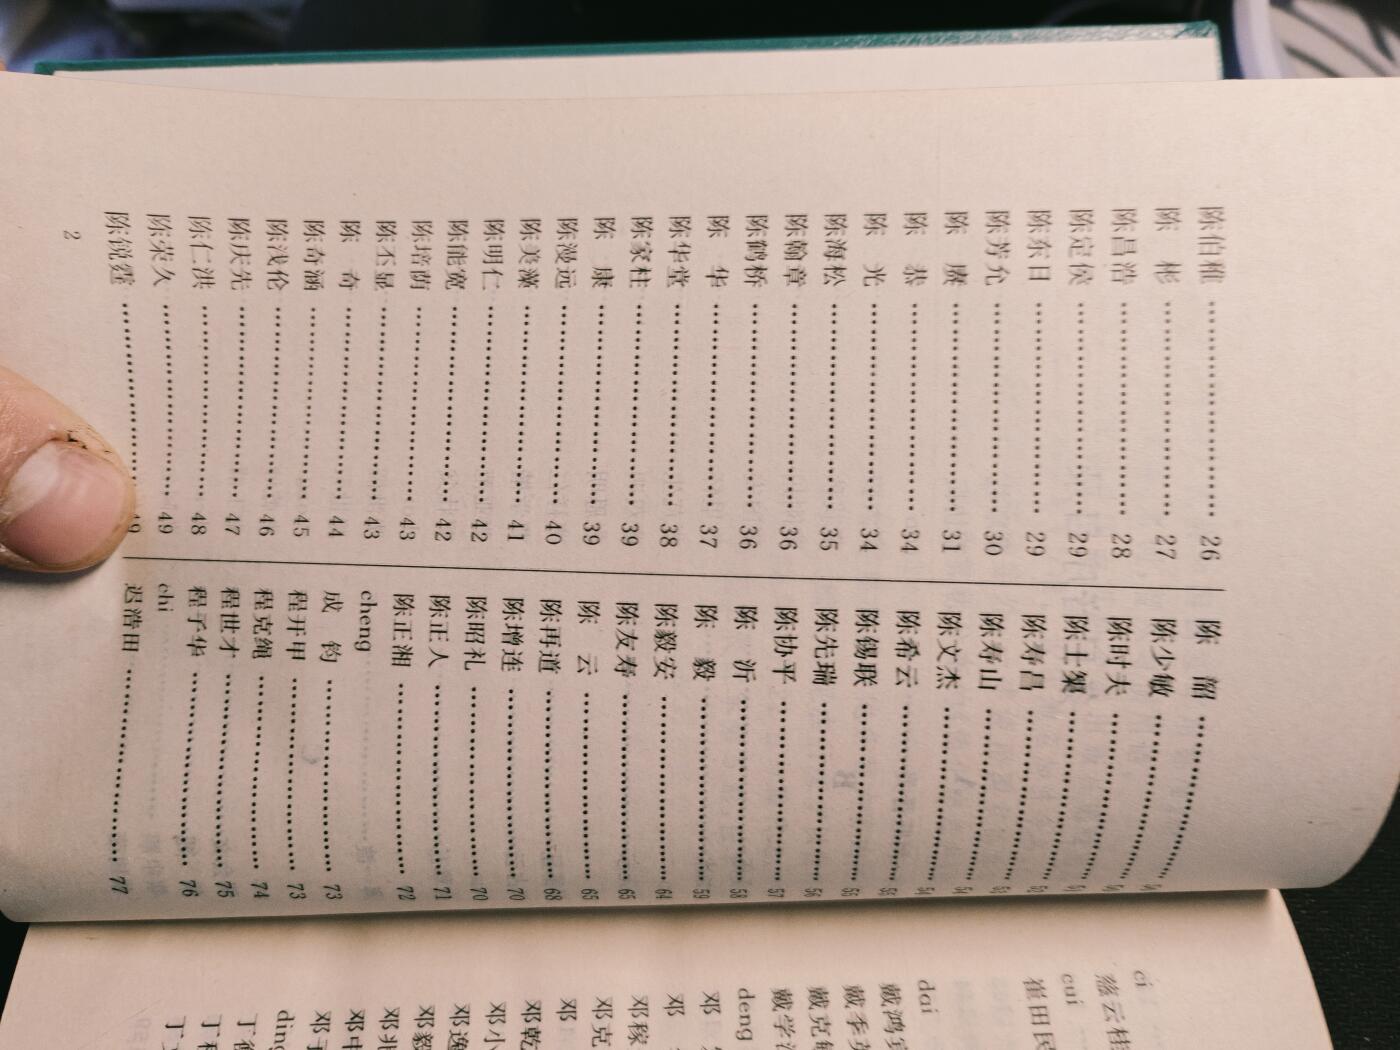 陈伯雅 …… 26
陈　彬 …… 27
陈昌浩 …… 28
陈定侯 …… 29
陈东日 …… 29
陈芳允 …… 30
陈　赓 …… 31
陈　恭 …… 34
陈　光 …… 34
陈海松 …… 35
陈瀚章 …… 36
陈鹤桥 …… 36
陈　华 …… 37
陈华堂 …… 38
陈家柱 …… 39
陈　康 …… 39
陈漫远 …… 40
陈美藻 …… 41
陈明仁 …… 42
陈能宽 …… 42
陈培荫 …… 43
陈丕显 …… 43
陈　奇 …… 44
陈奇涵 …… 45
陈浅伦 …… 46
陈庆先 …… 47
陈仁洪 …… 48
陈荣久 …… 49
陈锐霆 …… 49
2
陈　韶 ……
陈少敏 ……
陈时夫 ……
陈士榘 …… 51
陈寿昌 …… 52
陈寿山 …… 53
陈文杰 …… 54
陈希云 …… 55
陈锡联 …… 55
陈先瑞 …… 56
陈协平 …… 57
陈　沂 …… 58
陈　毅 …… 59
陈毅安 …… 64
陈友寿 …… 65
陈　云 …… 65
陈再道 …… 68
陈增连 …… 70
陈昭礼 …… 70
陈正人 …… 71
陈正湘 …… 72
cheng
成　钧 …… 73
程开甲 …… 73
程克绳 …… 74
程世才 …… 75
程子华 …… 76
chi
迟浩田 …… 77
ci
慈云桂
cui
崔田民
dai
戴鸿宾
戴季英
戴克敏
戴学
deng
邓
邓
邓稼
邓克
邓
邓乾
邓小
邓逸
邓毅
邓兆
邓中
邓子
ding
丁
丁
丁